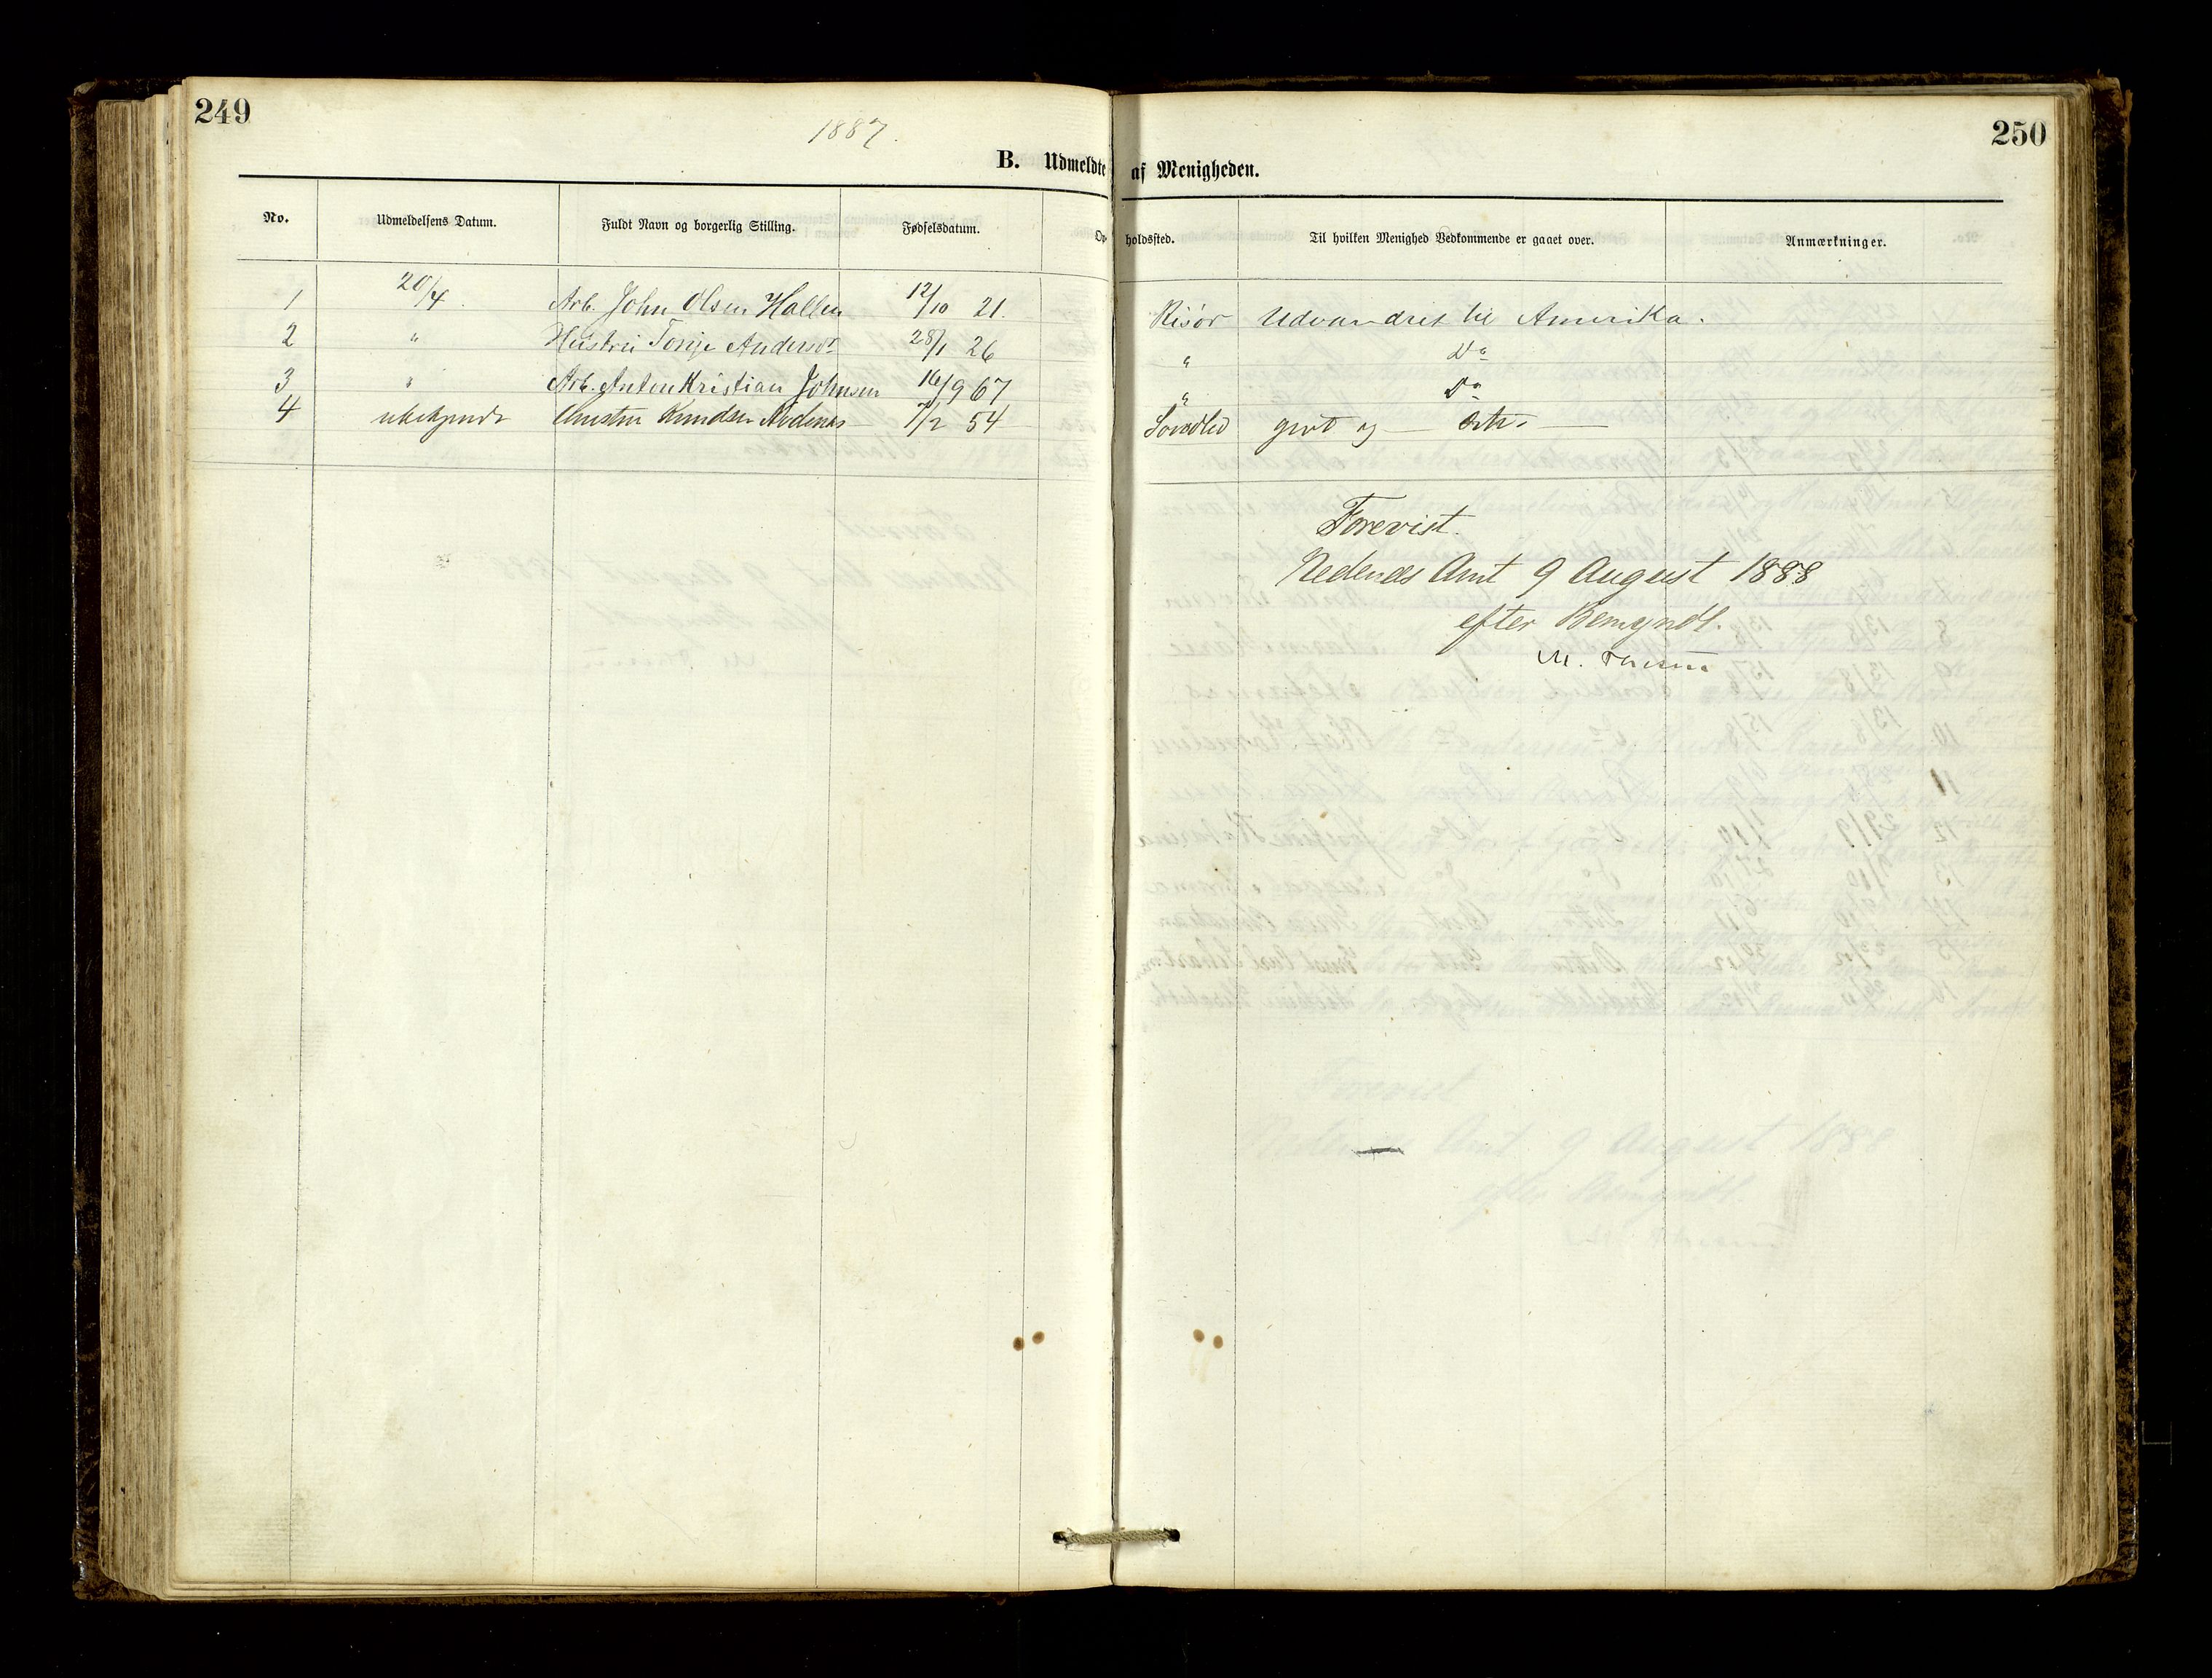 249
250
1887.
B. Udmeldte af Menigheden.
No. Udmeldelsens Datum. Fuldt Navn og borgerlig Stilling. Fødselsdatum. Opholdssted. Til hvilken Menighed Vedkommende er gaaet over. Anmærkninger.
1 20/4. Arb. John Olsen Hallen 12/10 21. Risør Udvandret til Amerika.
2 " Hustru Tonje Andersdr 28/1 26 " Do
3 " Arb. Anton Kristian Johnsen 16/9 67 " Do
4 ubekjendt Knudsen 7/2 54 og
Forevist.
Nedenæs Amt 9 August 1888
efter Bemyndl.
M.